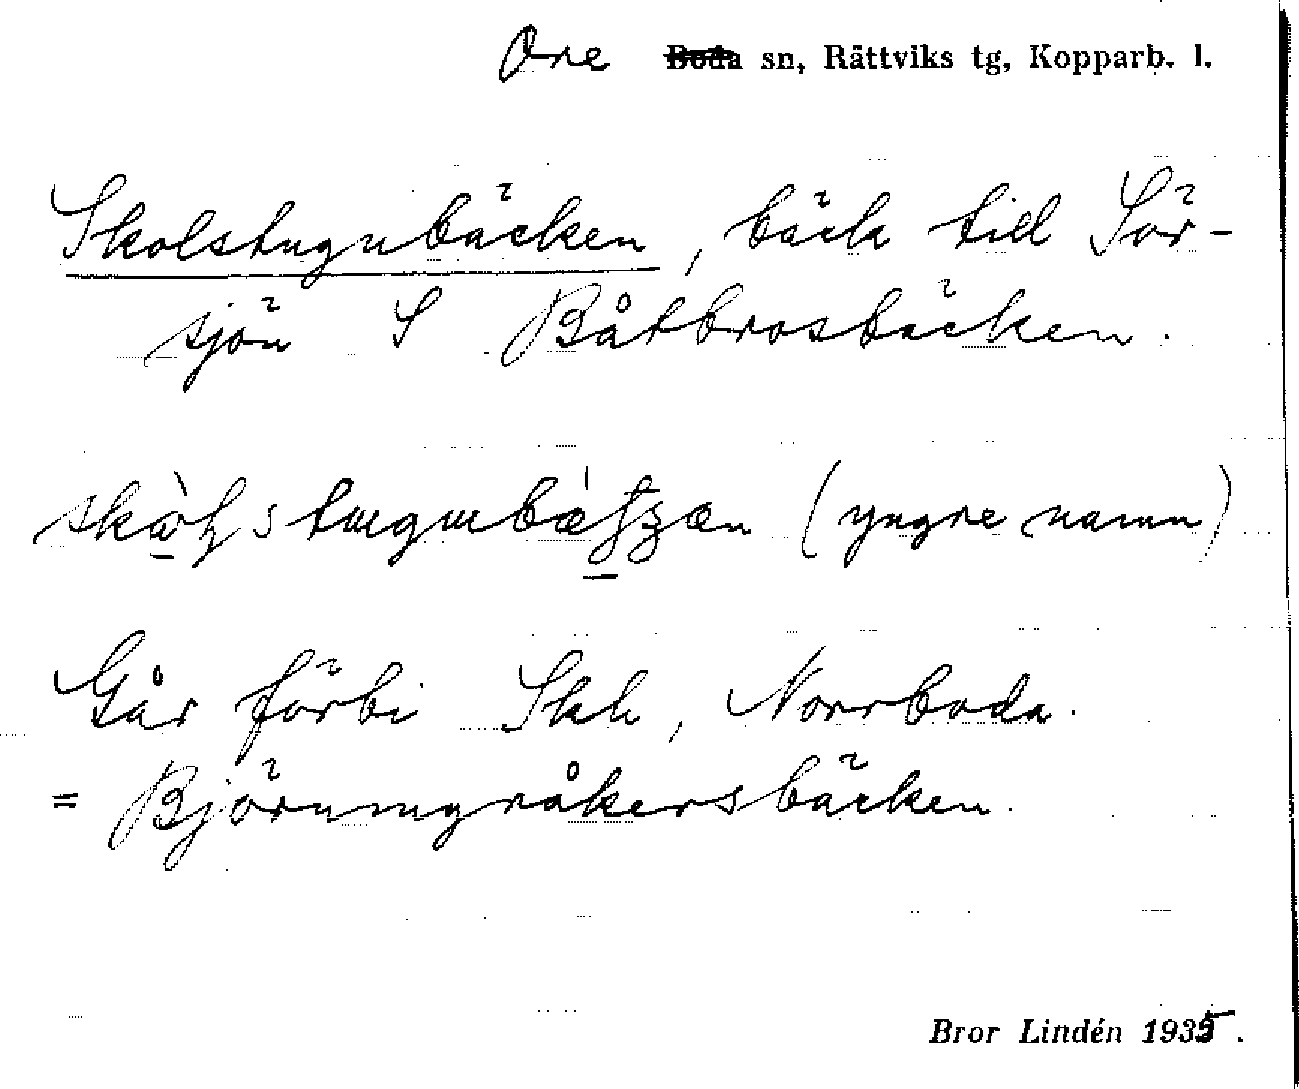 Ore Boda sn, Rättviks tg, Kopparb. l.
Skolstugubäcken, bäck till Sör-
sjön S Båtbrosbäcken.
(yngre namn)
Går förbi Skh, Norrboda.
= Björnmyråkersbäcken.
Bror Lindén 1935.